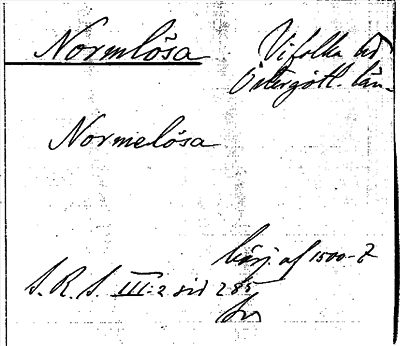 Normlösa
Vifolka hd
Östergötl. län.
Normelösa
börj. af 1500-t
S. R. S. III-2 sid 285